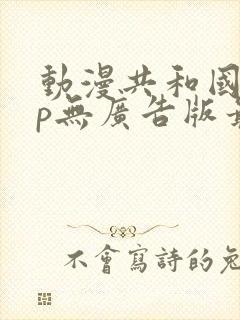 動漫共和國
p無廣告版
不會寫詩的兔